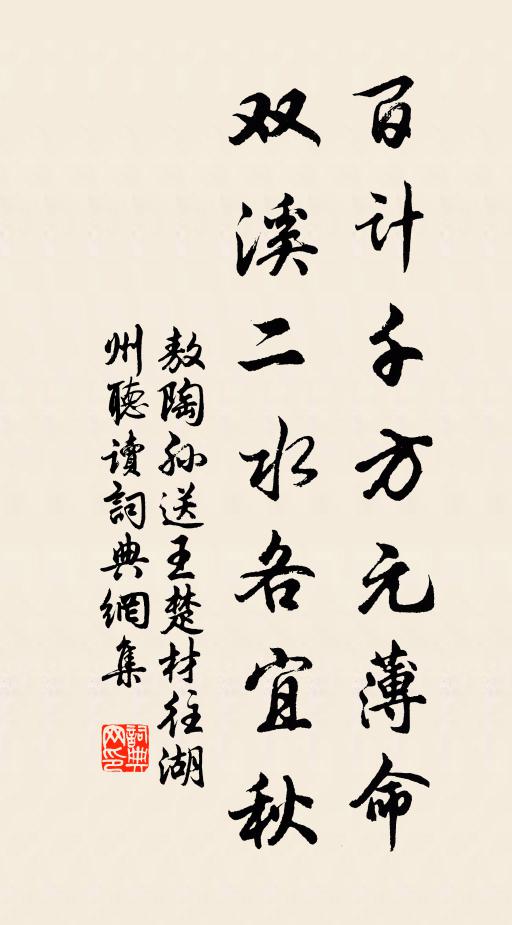 百计千方元薄命
双溪二水各宜秋
敖陶孙送王楚材往湖
州聽讀詞典網集
詞典
网印